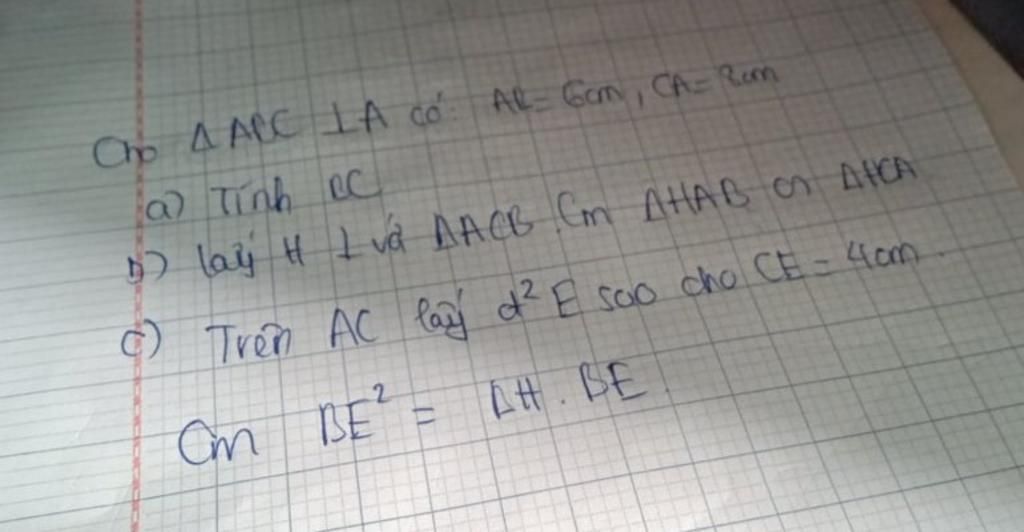 Cho Δ ABC ⊥A có: AB = 6cm, CA = 8cm
a) Tính BC
b) lấy H ⊥ và ΔACB. Cm ΔHAB ∽ ΔHCA
c) Trên AC lấy đ² E sao cho CE = 4cm.
Cm BE² = BH . BE.